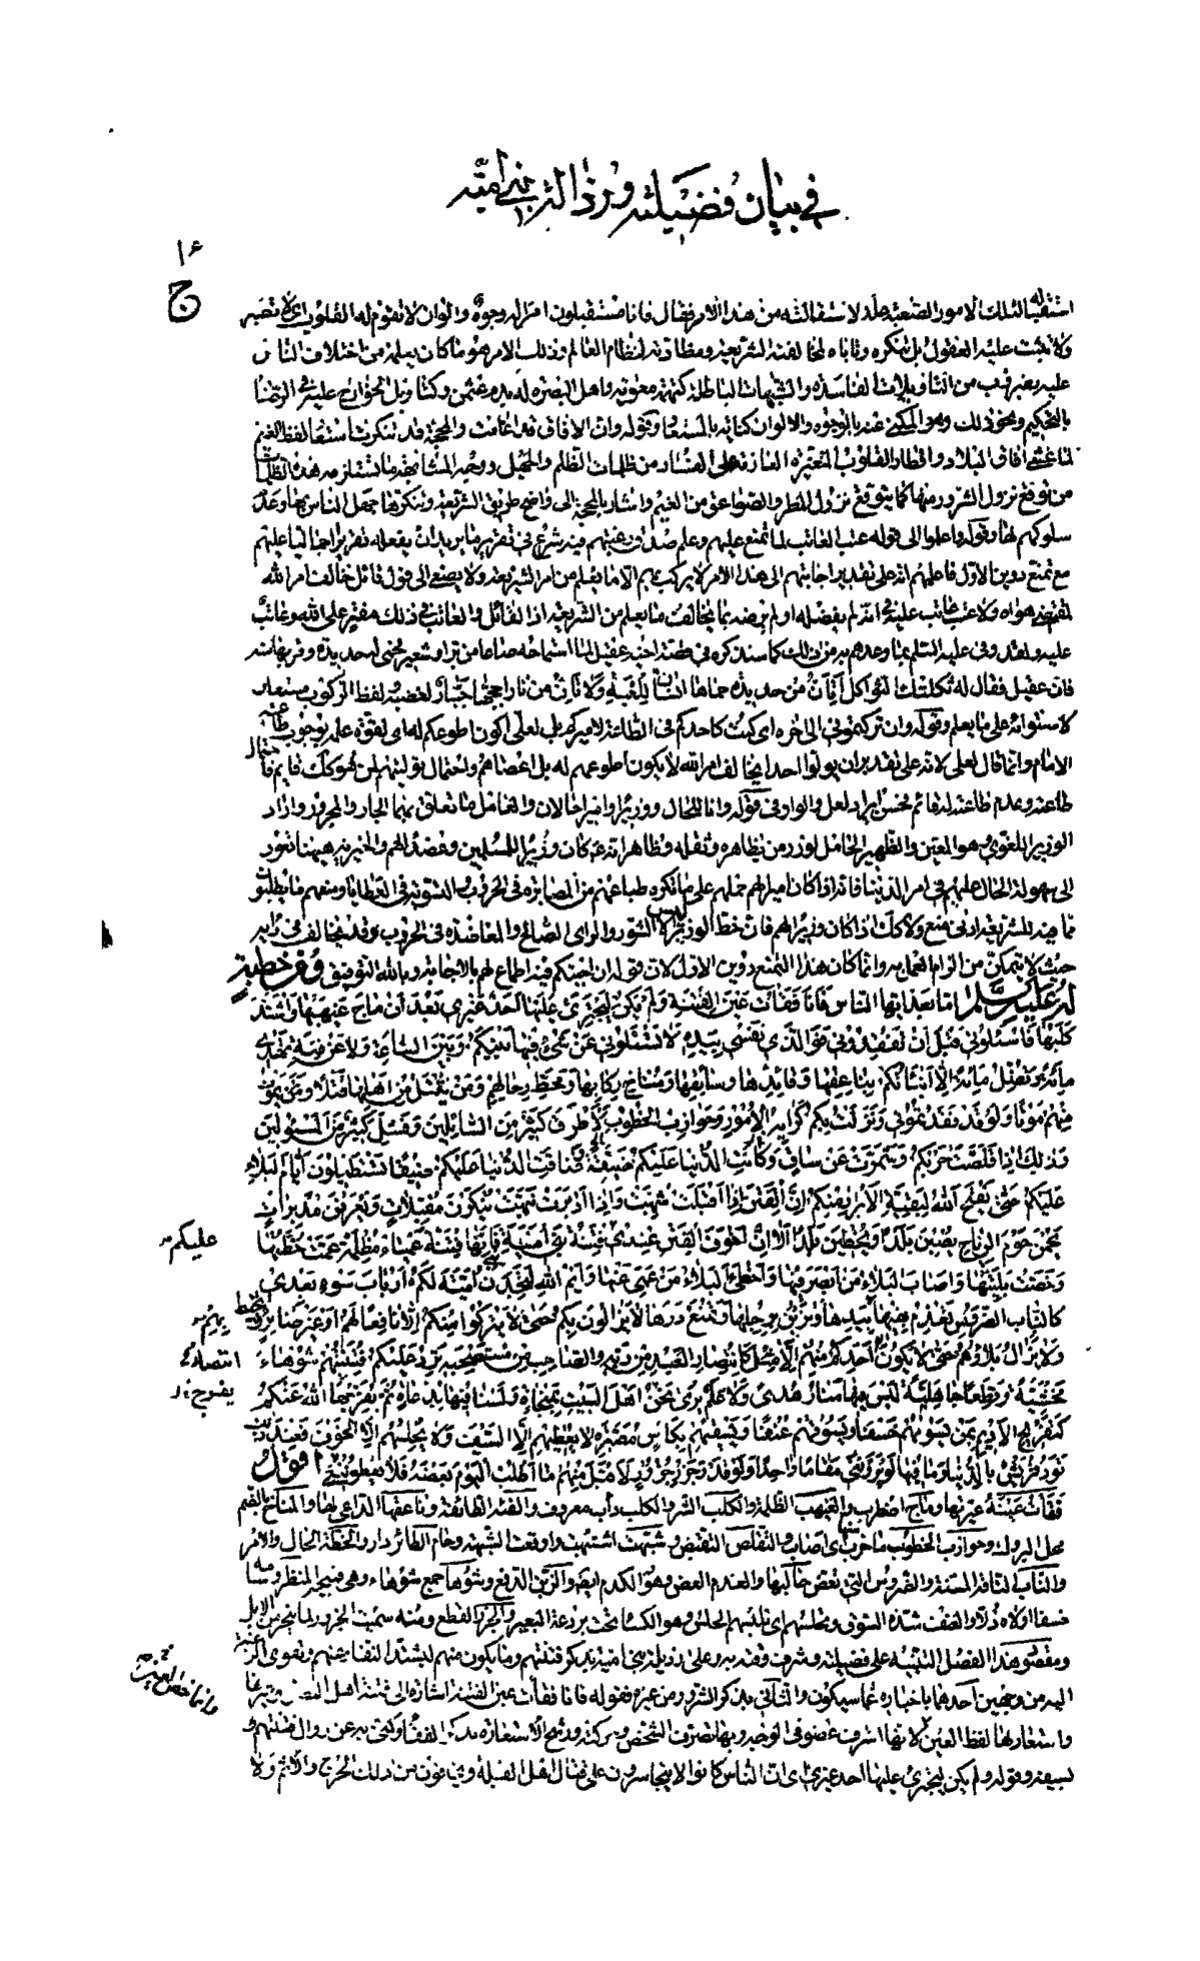 في بيان فضيلته ورذالة بني امية
ج
استقباله لتلك الامور الصعبة علة لاستقالته من هذا الامر فقال فانا مستقبلون امرا له وجوه والوان لا تقوم له القلوب اي لا تصبر
ولا تثبت عليه العقول بل تنكره وتاباه لمخالفته الشريعة ومضادته لنظام العالم وذلك الامر هو ما كان يعلمه من اختلاف الناس
عليه بضروب من التاويلات الفاسدة والشبهات الباطلة كتهمة معوية واهل البصرة له بدم عثمن وكتاويل الخوارج عليه في الرضا
بالتحكيم ونحو ذلك وهو المكنى عنه بالوجوه والالوان كناية بالمستعار وقوله وان الافاق قد اغامت والمحجة قد تنكرت استعار لفظ الغيم
لما غشي آفاق البلاد واقطار القلوب المتغيرة العازمة على الفساد من ظلمات الظلم والجهل ووجه المشابهة ما تستلزمه هذه الظلمات
من توقع نزول الشرور منها كما يتوقع نزول المطر والصواعق من الغيم واشار بالمحجة الى واضح طريق الشريعة وتنكرها جهل الناس بها وعدم
سلوكهم لها وقوله واعلموا الى قوله عتب العاتب لما تمنع عليهم وعلم صدق رغبتهم فيه شرع في تقرير ما يريد ان يفعله تقريرا اجماليا عليهم
مع تمنع دون الاول فاعلمهم انه على تقدير اجابتهم الى هذا الامر لا يركب بهم الا ما يعلم من امر الشريعة ولا يصغي الى قول قائل خالف امر الله
لمقتضى هواه ولا عتب عاتب عليه في انه لم يفضله او لم يرضه بما يخالف ما يعلم من الشريعة اذ القائل والعاتب في ذلك مفتر على الله وعاتب
عليه ولقد وفى عليه السلم بما وعدهم به من ذلك كما سنذكره في قصة اخيه عقيل لما استماحه صاعا من بر او شعير فحمى له حديدة وقربها منه
فان عقيل فقال له ثكلتك الثواكل أتئن من حديدة حماها انسان للعبه ولا تان من نار اججها جبار لغضبه ولفظ الركوب مستعار
لاستوائه على ما يعلم وقوله وان تركتموني الى آخره اي كنت كاحدكم في الطاعة لاميركم بل لعلي اكون اطوعكم له اي لقوة علمه بوجوب طاعة
الامام وانما قال لعلي لانه على تقدير ان يولوا احدا يخالف امر الله لا يكون اطوعهم له بل اعصاهم واحتمال توليتهم لمن هو كذلك قايم فاحتمال
طاعته وعدم طاعته له قائم فحسن ايراد لعل والواو في قوله وانا للحال ووزيرا واميرا حالان والعامل ما تعلق به الجار والمجرور واراد
الوزير اللغوي وهو المعين والظهير الحامل لوزر من يظاهره وثقله وظاهر انه ع كان وزيرا للمسلمين وعضدا لهم والخيرية هيهنا تعود
الى سهولة الحال عليهم في امر الدنيا فانه اذا كان اميرا لهم حملهم على ما تكره طباعهم من المصابرة في الحروب والتسوية في العطايا ومنعهم ما يطلبون
مما فيه للشريعة ادنى منع ولا كذلك اذا كان وزيرا لهم فان حظ الوزير ليس الا الشور والراي الصالح والمعاضدة في الحروب وقد يخالف في رايه
حيث لا يتمكن من الزام العمل به وانما كان هذا التمنع دون الاول لان قوله ان اجبتكم فيه اطماع لهم بالاجابة وبالله التوفيق ومن خطبة
له عليه السلم اما بعد ايها الناس فانا فقأت عين الفتنة ولم يكن ليجترئ عليها احد غيري بعد ان ماج غيهبها واشتد
كلبها فاسئلوني قبل ان تفقدوني فو الذي نفسي بيده لا تسئلوني عن شيء فيما بينكم وبين الساعة ولا عن فئة تهدي
مائة وتضل مائة الا انبأتكم بناعقها وقائدها وسائقها ومناخ ركابها ومحط رحالهم ومن يقتل من اهلها قتلا ومن يموت
منهم موتا ولو قد فقدتموني ونزلت بكم كرائه الامور وحوازب الخطوب لاطرق كثير من السائلين وفشل كثير من المسئولين
وذلك اذا قلصت حربكم وشمرت عن ساق وكانت الدنيا عليكم ضيقا تستطيلون ايام البلاء
عليكم حتى يفتح الله لبقية الابرار منكم ان الفتن اذا اقبلت شبهت واذا ادبرت نبهت ينكرن مقبلات ويعرفن مدبرات
يحمن حوم الرياح يصبن بلدا ويخطين بلدا الا ان اخوف الفتن عندي عليكم فتنة بني امية فانها فتنة عمياء مظلمة عمت خطتها
وخصت بليتها واصاب البلاء من ابصر فيها واخطأ البلاء من عمي عنها وايم الله لتجدن بني امية لكم ارباب سوء بعدي
كالناب الضروس تعذم بفيها وتخبط بيدها وتزبن برجلها وتمنع درها لا يزالون بكم حتى لا يتركوا منكم الا نافعا لهم او غير ضائر بهم
ولا يزال بلاؤهم حتى لا يكون انتصار احدكم منهم الا مثل انتصار العبد من ربه والصاحب من مستصحبه ترد عليكم فتنتهم شوهاء
مخشية وقطعا جاهلية ليس فيها منار هدى ولا علم يرى نحن اهل البيت منها بمنجاة ولسنا فيها بدعاة ثم يفرجها الله عنكم
كتفريج الاديم بمن يسومهم خسفا ويسوقهم عنفا ويسقيهم بكاس مصبرة لا يعطيهم الا السيف ولا يحلسهم الا الخوف فعند ذلك
تود قريش بالدنيا وما فيها لو يرونني مقاما واحدا ولو قدر جزر جزور لاقبل منهم ما اطلب اليوم بعضه فلا يعطونني اقول
فقأت عينه عورتها وماج اضطرب والغيهب الظلمة والكلب الشر والكلب داء معروف والفئة الطائفة وناعقها الداعي لها والمناخ بالضم
محل البروك وحوازب الخطوب ما حزب منها اي اصاب والتقلص التقبض وشبهت اشتبهت واوقعت الشبهة وحام الطائر دار والخطة الحال والامر
والناب الناقة المسنة والضروس التي تعض حالبها والعذم العض وهو الكدم ايضا والزبن الدفع وشوها جمع شوهاء وهي قبيحة المنظر وسامه
خسفا اولاه ذلا والعنف شدة السوق ويحلسهم اي يلبسهم الحلس وهو الكساء تحت برذعة البعير والجزر القطع ومنه سميت الجزور لما ينحر من الابل
ومقصود هذا الفصل التنبيه على فضيلته وشرف وقته به وعلى رذيلة بني امية بذكر فتنتهم وما يكون منهم ليشتد النفار عنهم وتقوى الرغبة
اليه من وجهين احدهما باخباره عما سيكون والثاني بذكر الشرور من غيره فقوله فانا فقأت عين الفتنة اشارة الى فتنة اهل البصرة وغيرها
واستعار لها لفظ العين لانها اشرف عضو في الوجه وبها تصرف الشخص وحركته ورشح الاستعارة بذكر الفقأ وكنى به عن زوال فتنتهم
بسيفه وقوله ولم يكن ليجترئ عليها احد غيري اي ان الناس كانوا لا يتجاسرون على قتال اهل القبلة ويخافون من ذلك الحرج والاثم ولا
عليكم
انتصار